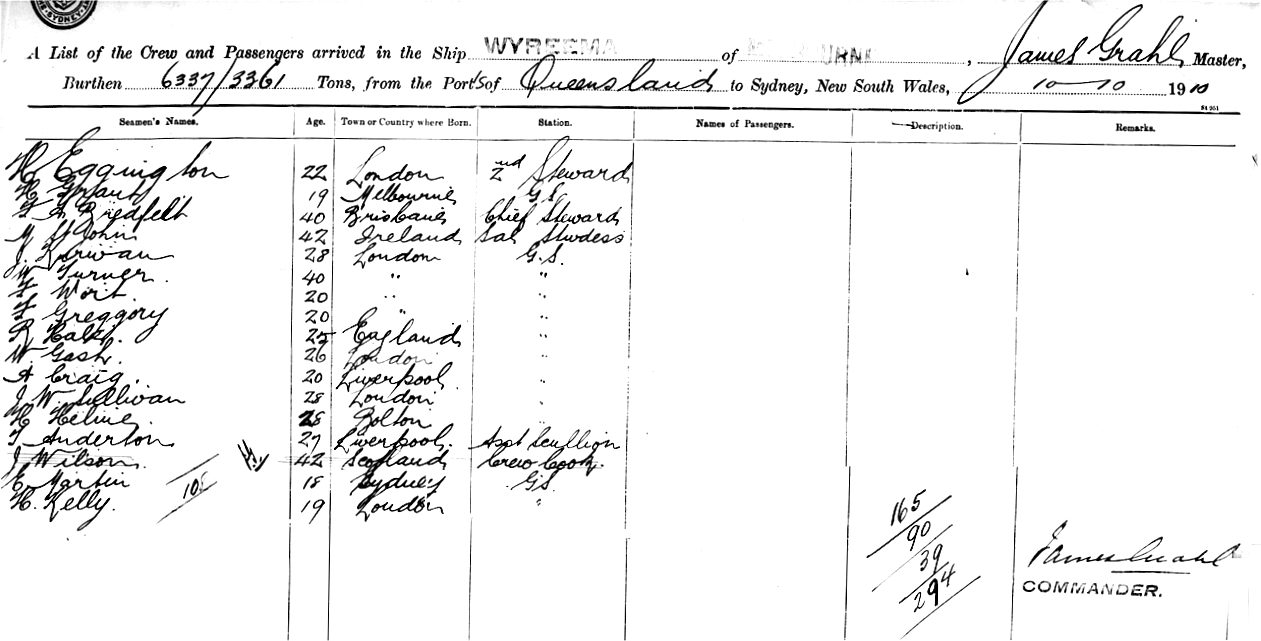 SYDNEY
A List of the Crew and Passengers arrived in the Ship WYREEMA of , James Grahl Master,
Burthen 6337/3361 Tons, from the Port's of Queensland to Sydney, New South Wales, 10-10 1910
St 951
Seamen's Names. Age. Town or Country where Born. Station. Names of Passengers. Description. Remarks.
H Eggington 22 London 2nd Steward
H Grant 19 Melbourne G.S.
F A Bredfelt 40 Brisbane Chief Steward
M St John 42 Ireland Sal Stwdess
J. Kirwan 28 London G.S.
W Turner 40 " "
F Wort 20 " "
F Greggory 20 " "
R Halk. 25 England "
W Gash. 26 London "
A Craig. 20 Liverpool "
J W. Sullivan 28 London "
H Helme 28 Bolton
T Anderton 27 Liverpool. Asst Scullion
J Wilson. 42 Scotland Crew Cook.
E Martin 18 Sydney G.S.
H. Kelly. 19 London "
165
90
39
294
James Grahl
COMMANDER.